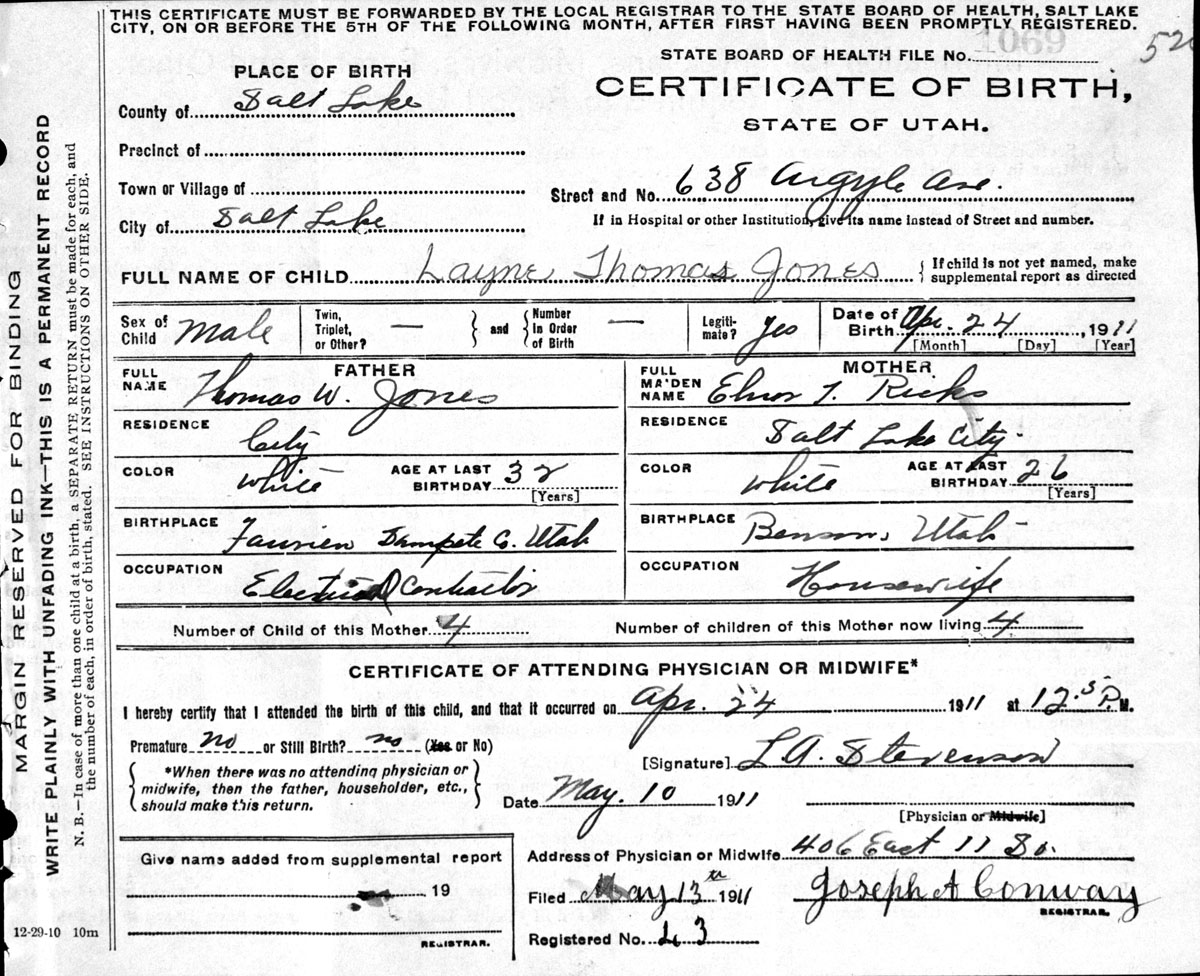 THIS CERTIFICATE MUST BE FORWARDED BY THE LOCAL REGISTRAR TO THE STATE BOARD OF HEALTH, SALT LAKE
CITY, ON OR BEFORE THE 5TH OF THE FOLLOWING MONTH, AFTER FIRST HAVING BEEN PROMPTLY REGISTERED.
STATE BOARD OF HEALTH FILE No. 1069
CERTIFICATE OF BIRTH,
STATE OF UTAH.
PLACE OF BIRTH
County of Salt Lake
Precinct of
Town or Village of
City of Salt Lake
Street and No. 638 Argyle Ave.
If in Hospital or other Institution, give its name instead of Street and number.
FULL NAME OF CHILD Layne Thomas Jones
{ If child is not yet named, make
supplemental report as directed
Sex of Child Male
Twin, Triplet, or Other? —
and
Number In Order of Birth —
Legiti-mate? yes
Date of Birth Apr. 24 1911
[Month] [Day] [Year]
FATHER
FULL NAME Thomas W. Jones
RESIDENCE City
COLOR White AGE AT LAST BIRTHDAY 32
[Years]
BIRTHPLACE Sampete Co. Utah
OCCUPATION Electrical Contractor
MOTHER
FULL MAIDEN NAME T. Ricks
RESIDENCE Salt Lake City
COLOR White AGE AT LAST BIRTHDAY 26
[Years]
BIRTHPLACE Benson, Utah
OCCUPATION Housewife
Number of Child of this Mother 4
Number of children of this Mother now living 4
CERTIFICATE OF ATTENDING PHYSICIAN OR MIDWIFE*
I hereby certify that I attended the birth of this child, and that it occurred on Apr. 24 1911 at 12.5 P.M.
Premature no or Still Birth? no (Yes or No)
*When there was no attending physician or
midwife, then the father, householder, etc.,
should make this return.
[Signature] L A. Stevenson
Date May. 10 1911
[Physician or Midwife]
Give name added from supplemental report
19
REGISTRAR.
Address of Physician or Midwife 406 East 11 So.
Filed May 13th 1911
Joseph A Conway
REGISTRAR.
Registered No. 3
12-29-10 10m
MARGIN RESERVED FOR BINDING
WRITE PLAINLY WITH UNFADING INK—THIS IS A PERMANENT RECORD
N. B.—In case of more than one child at a birth, a SEPARATE RETURN must be made for each, and
the number of each, in order of birth, stated. SEE INSTRUCTIONS ON OTHER SIDE.